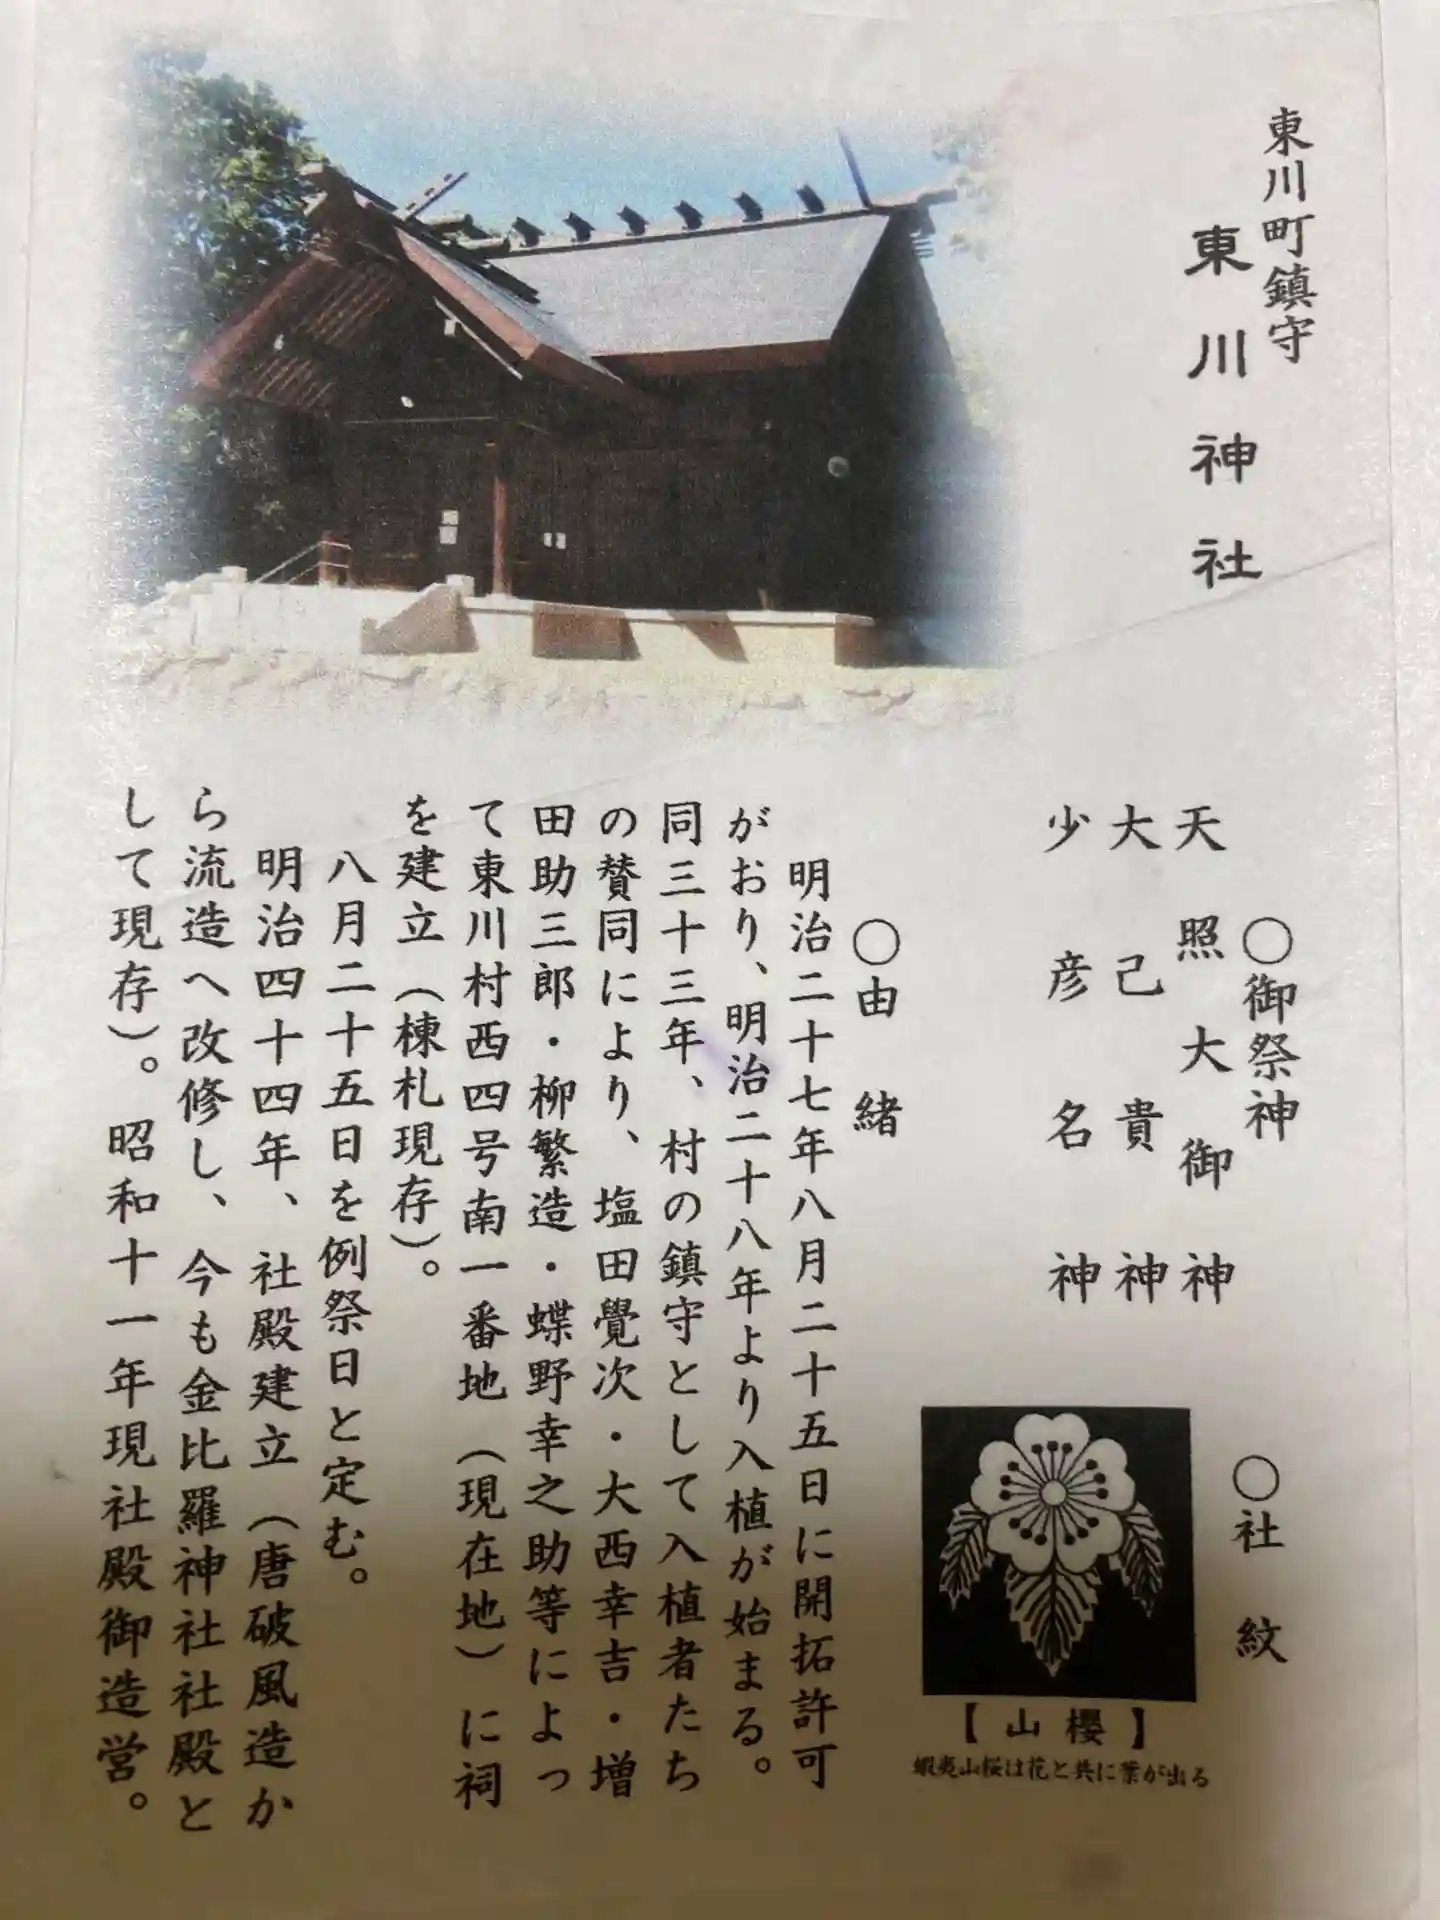 東川町鎮守
東川神社
○御祭神
天照大御神
大己貴神
少彦名神
○社紋
【山櫻】
蝦夷山桜は花と共に葉が出る
○由緒
明治二十七年八月二十五日に開拓許可
がおり、明治二十八年より入植が始まる。
同三十三年、村の鎮守として入植者たち
の賛同により、塩田覺次・大西幸吉・増
田助三郎・柳繁造・蝶野幸之助等によっ
て東川村西四号南一番地（現在地）に祠
を建立（棟札現存）。
八月二十五日を例祭日と定む。
明治四十四年、社殿建立（唐破風造か
ら流造へ改修し、今も金比羅神社社殿と
して現存）。昭和十一年現社殿御造営。